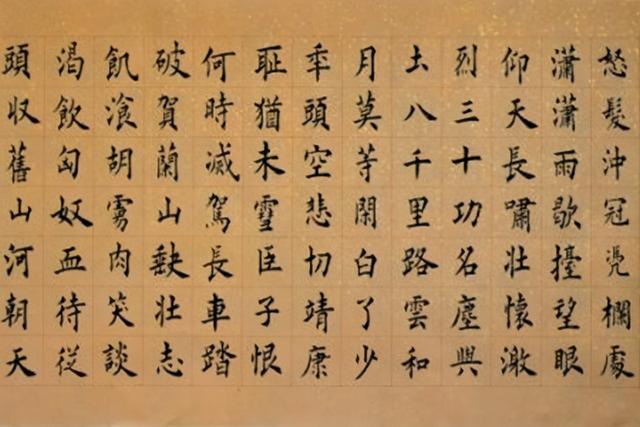 怒髮沖冠凭欄處
瀟瀟雨歇擡望眼
仰天長嘯壯懷激
烈三十功名塵與
土八千里路雲和
月莫等閑白了少
年頭空悲切靖康
耻猶未雪臣子恨
何時滅駕長車踏
破賀蘭山缺壯志
飢湌胡虜肉笑談
渴飲匈奴血待從
頭収舊山河朝天